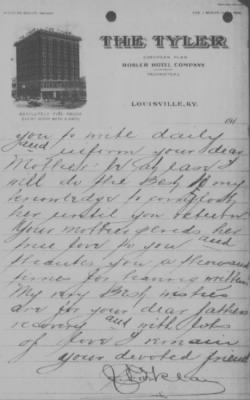 THE TYLER
EUROPEAN PLAN
ROSLER HOTEL COMPANY
PROPRIETORS
ABSOLUTELY FIRE PROOF
EVERY ROOM WITH A BATH
LOUISVILLE, KY.
191
you to write daily
and inform your dear
Mother
will do the best of my
knowledge to
her until you return
Your mother sends her
true love to you and
thanks you a thousand
times for having written
My very Best wishes
are for your dear fathers
recovery and with lots
of love I remain
your devoted friend